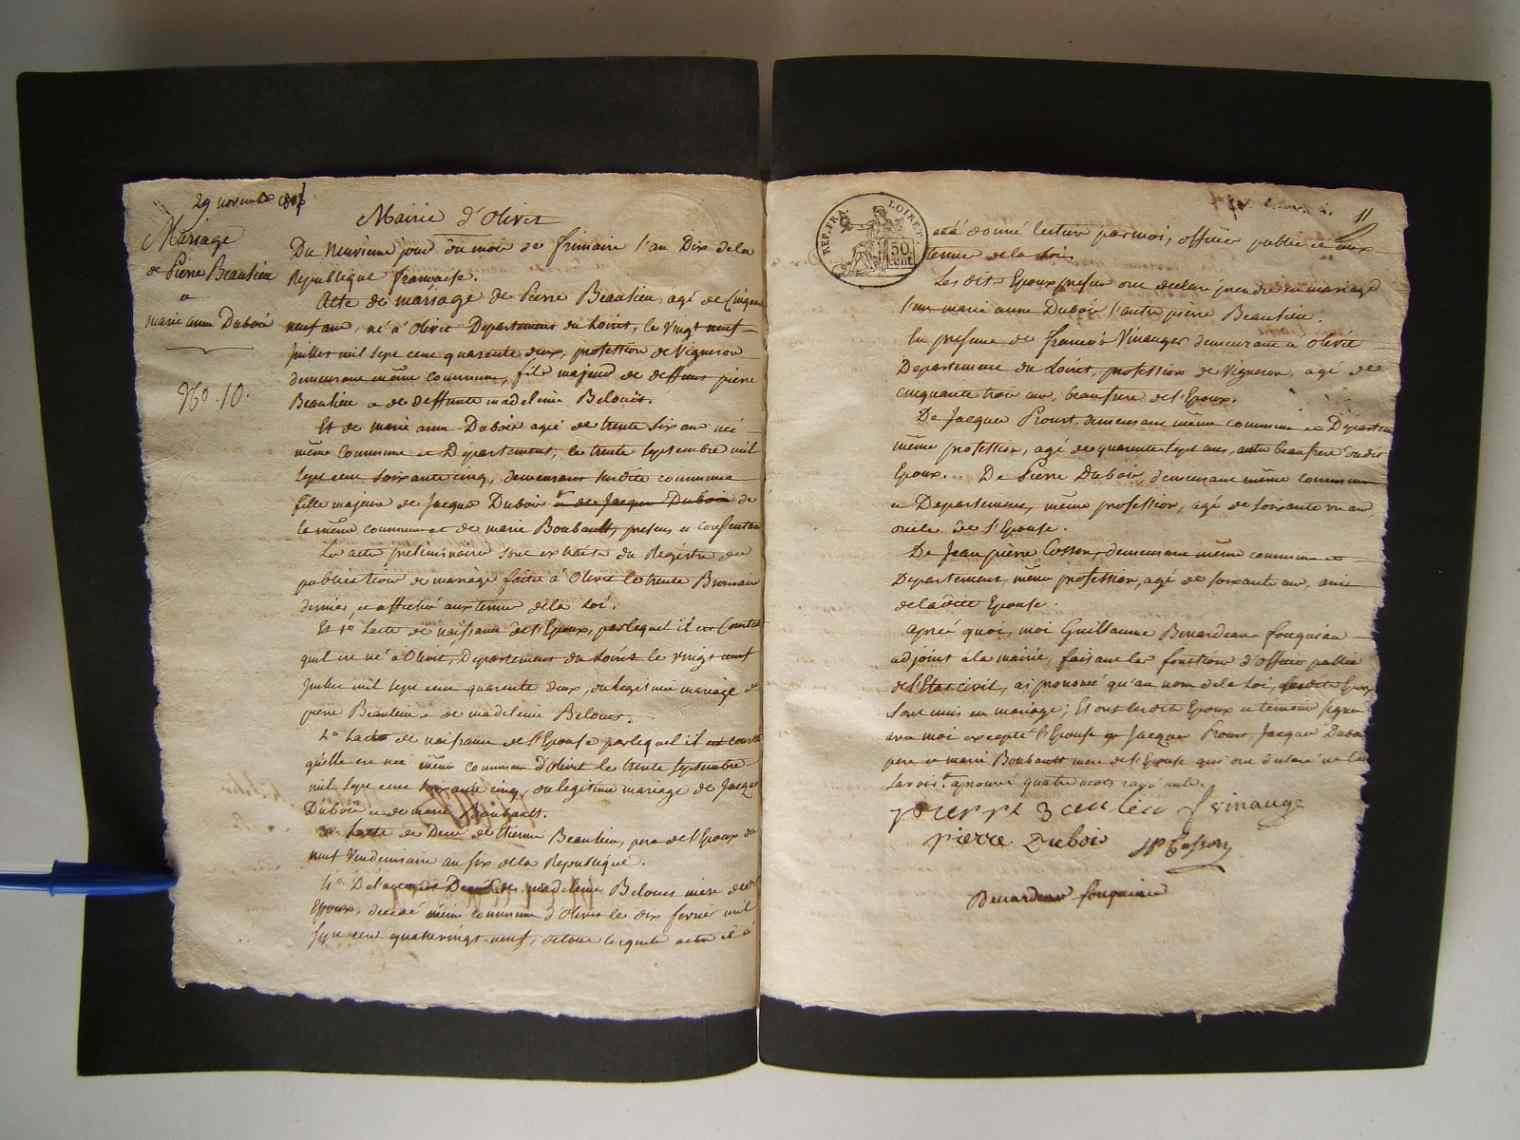 29 novembre 1801
Mariage
de Pierre Beaulieu
a
marie anne Dubois
No. 10.
Mairie d'Olivet
Du neuvieme jour du mois de frimaire l'an Dix de la
Republique françoise.
Acte de mariage de Pierre Beaulieu, agé de Cinquante
neuf ans, né a Olivet Departement du Loiret, le vingt neuf
juillet mil sept cent quarente deux, profession de Vigneron
demeurant même commune, fils majeur de deffunt pierre
Beaulieu et de deffunte madeleine Belouet.
Et de marie anne Dubois agée de trente six ans née
même commune et Departement, le trente septembre mil
sept cent soixante cinq, demeurant susdite commune
fille majeure de Jacques Dubois et de Jacques Dubois de
la même commune et de marie Boubault, presens et consentans
Les actes preliminaires sont extraits du Registre des
publications de mariage faites a Olivet le trente Brumaire
dernier, et affiché aux termes de la Loi.
Et 1o Lacte de naissance de l'Epoux, par lequel il est Constaté
qu'il est né a Olivet, Departement du Loiret le vingt neuf
juillet mil sept cent quarente deux, du legitime mariage de
pierre Beaulieu et de madeleine Belouet.
2o Lacte de naissance de l'Epouse par lequel il est constaté
qu'elle est née même commune d'Olivet le trente septembre
mil sept cent soixante cinq, du legitime mariage de Jacques
Dubois et de marie Boubault.
3o Lacte de Decès de Beaulieu, pere de l'Epoux du
neuf Vendemiaire an six de la Republique.
4o De lacte de Decès de madeleine Belouet mere de
Epoux, decedé même commune d'Olivet le dix fevrier mil
sept cent quatrevingt neuf, de tous lesquels actes il a
REP. FRA. LOIRET
50 Cent
11
eté donné lecture par moi, officier public et aux
termes de la Loi.
Les dits Epoux presens ont declaré prendre en mariage
l'un marie anne Dubois l'autre pierre Beaulieu.
En presence de francois Vinauger demeurant a olivet
Departement du Loiret, profession de Vigneron, agé de
cinquante trois ans, beaufrere de l'Epoux.
De Jacques Proust demeurant même commune et Departement
même profession, agé de quarente sept ans, autre beaufrere du dit
Epoux. De Pierre Dubois demeurant même commune
et Departement, même profession, agé de soixante un an
oncle de l'Epouse.
De Jean pierre Cosson, demeurant même commune et
Departement, même profession, agé de soixante ans, ami
de la dite Epouse.
Après quoi, moi Guillaume Benardeau fouqueau
adjoint a la mairie, faisant les fonctions d'officier public
de l'Etat civil, ai prononcé qu'au nom de la Loi, lesdits Epoux
sont unis en mariage; Et ont lesdits Epoux et temoins signé
avec moi excepté l'Epouse Jacques Proust, Jacques Dubois
pere et marie Boubault mere de l'Epouse qui ont declaré ne le
savoir. approuvé quatre mots rayé nuls.
pierre Beaulieu f vinauge
Pierre Dubois JP Cosson
Benardeau fouqueau